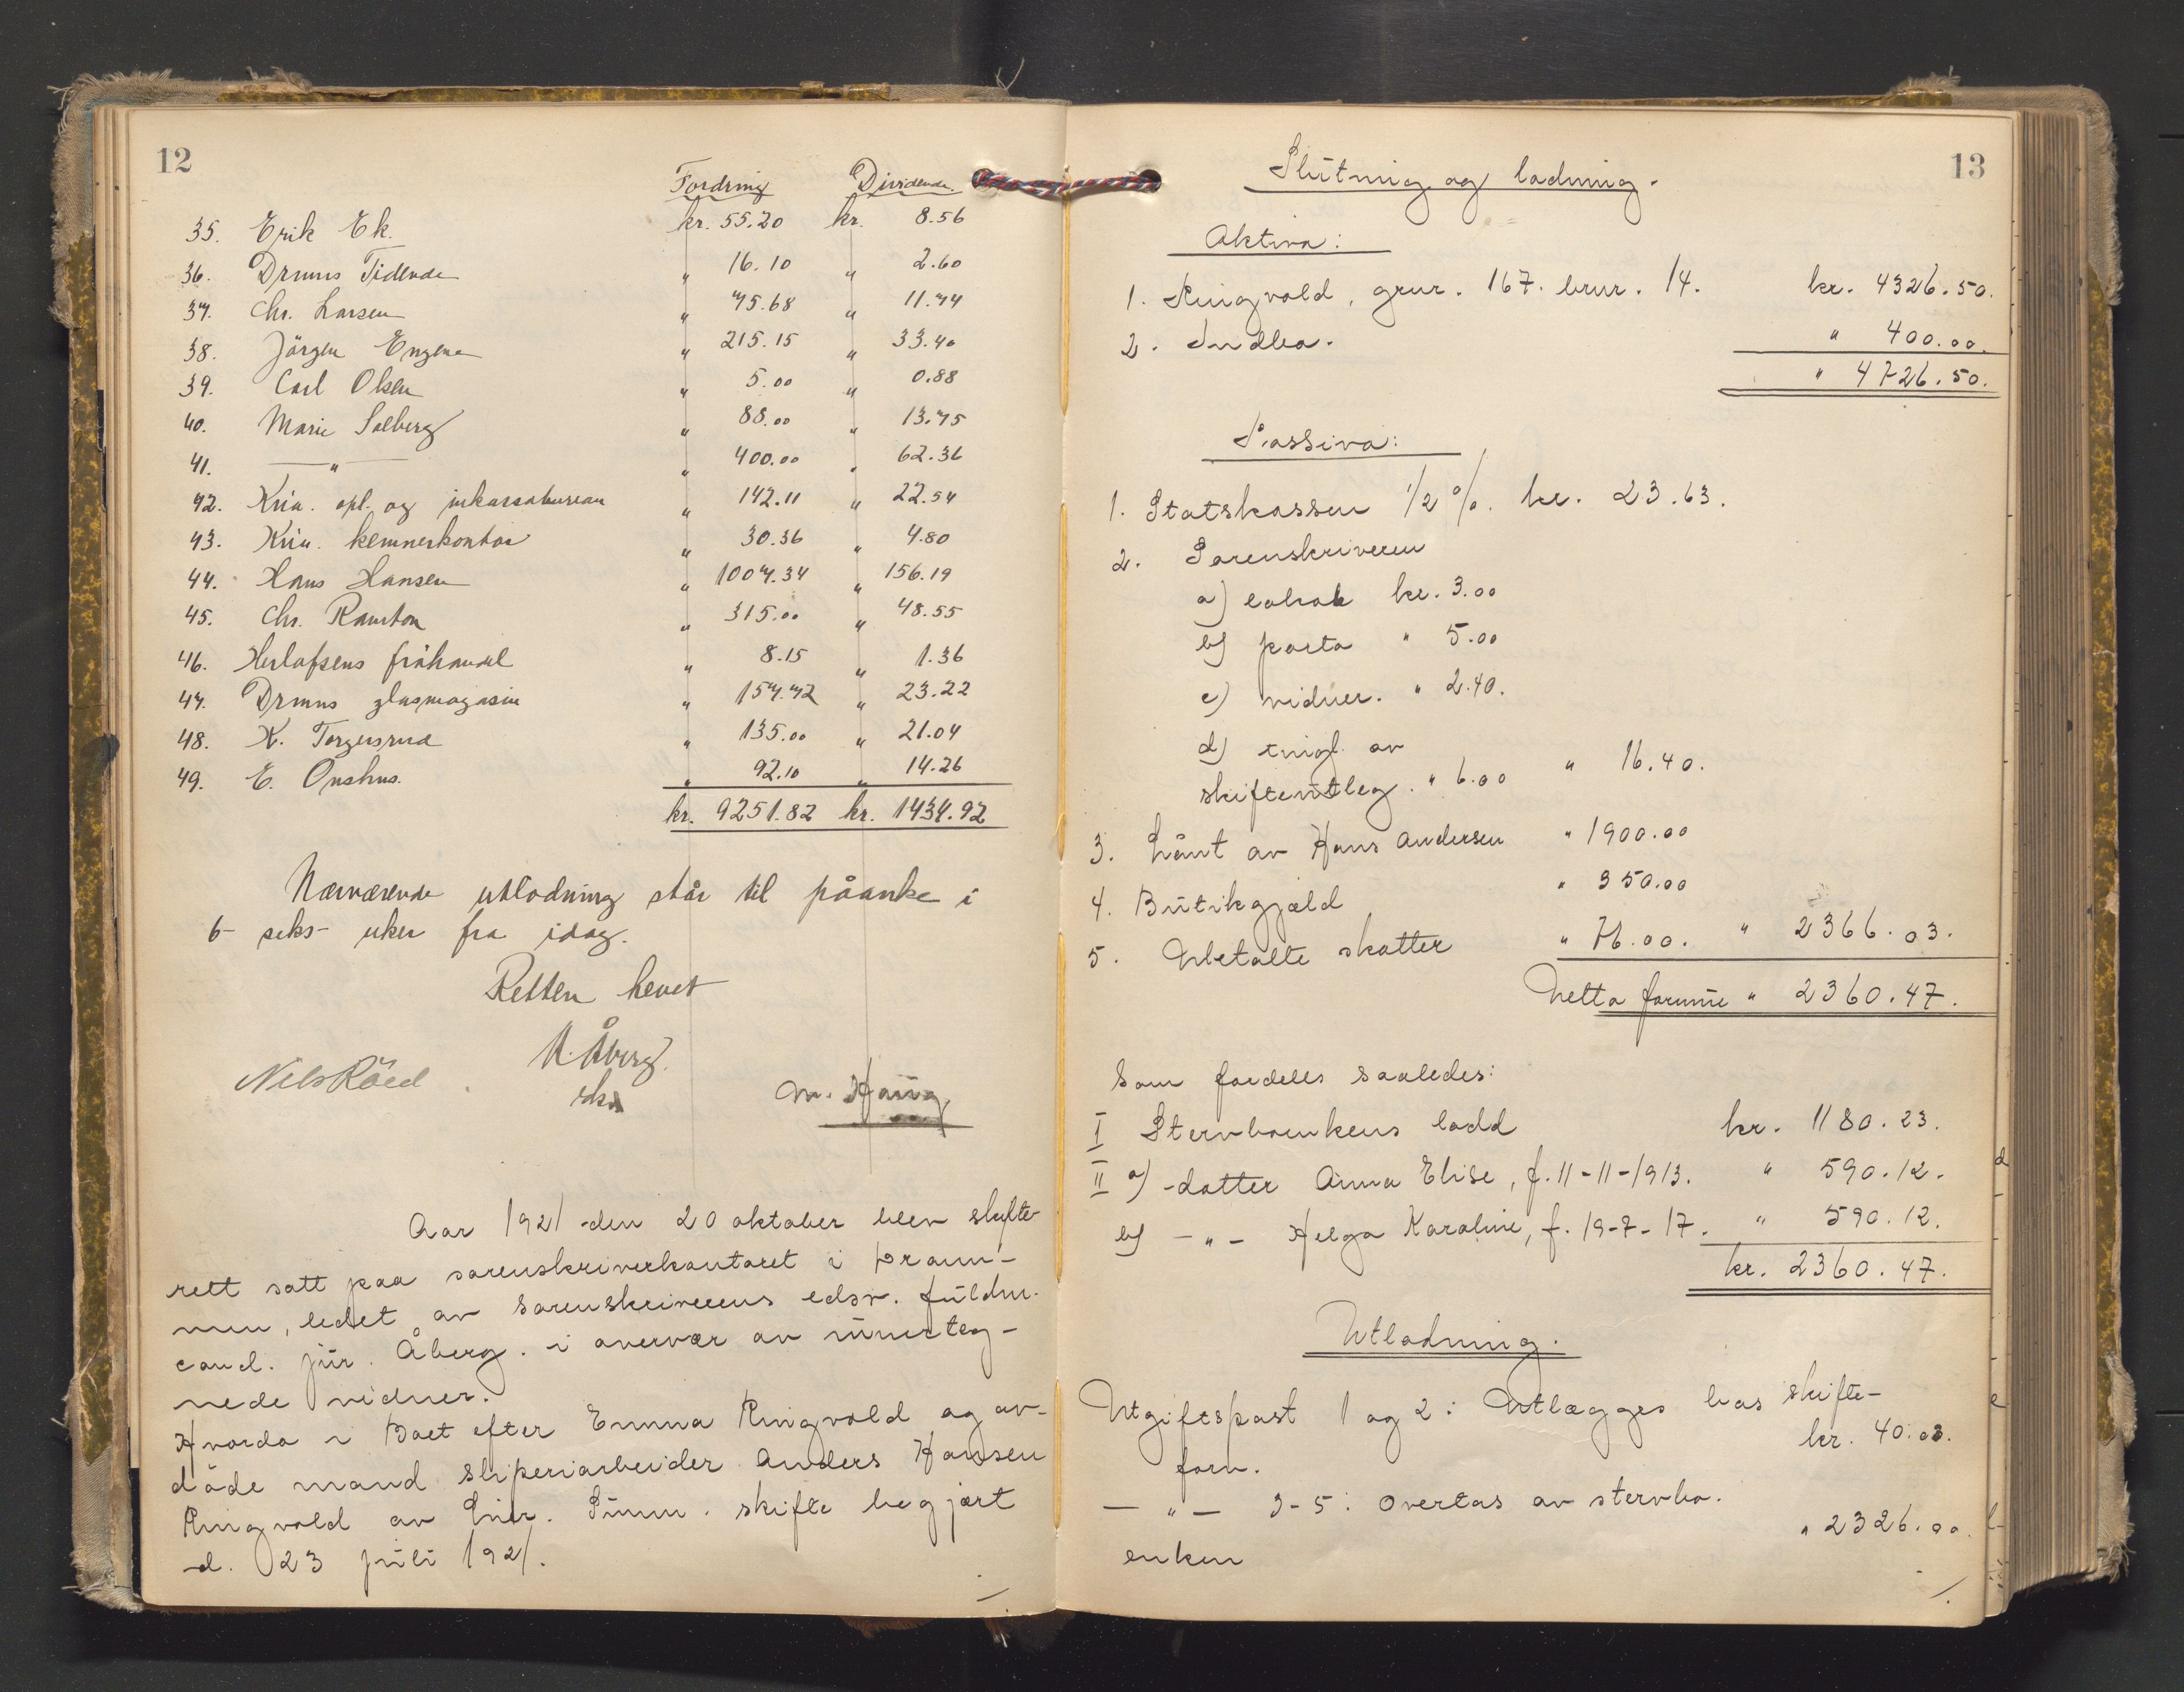 12
Fordring Dividende.
35. Erik Ek. kr. 55.20 kr. 8.56
36. Drmns Tidende " 16.10 " 2.60
37. Chr. Larsen " 75.68 " 11.74
38. Jörgen Engene " 215.15 " 33.40
39. Carl Olsen " 5.00 " 0.88
40. Marie Solberg " 88.00 " 13.75
41. —"— " 400.00 " 62.36
42. Kria. opl. og inkassobureau " 142.11 " 22.54
43. Kria. kemnerkontor " 30.36 " 4.80
44. Hans Hansen " 1007.34 " 156.19
45. Chr. Ramton " 315.00 " 48.55
46. Herlofsens fröhandel " 8.15 " 1.36
47. Drmns glasmagasin " 157.72 " 23.22
48. K. Torgersrud " 135.00 " 21.04
49. E. Onshus. " 92.10 " 14.26
kr. 9251.82 kr. 1434.92
Nærværende utlodning står til påanke i
6- seks- uker fra idag.
Retten hevet
N. Åberg
Nils Röed
M. Haug
Aar 1921 den 20 oktober blev skifte-
rett satt paa sorenskriverkontoret i Dram-
men, ledet av sorenskriverens edsv. fuldm.
cand. jur. Åberg. i overvær av underteg-
nede vidner.
Hvorda i Boet efter Emma Ringvold og av-
døde mand sliperiarbeider Anders Hansen
Ringvold av Lier. Summ. skifte begjært
d. 23 juli 1921.
13
Slutning og lodning.
Aktiva:
1. Ringvold, gnr. 167. brnr. 14. kr. 4326.50.
2. Indbo. " 400.00.
" 4726.50.
Passiva:
1. Statskassen 1/2 %. kr. 23.63.
2. Sorenskriveren
a) protok kr. 3.00
b) porto " 5.00
c) vidner. " 2.40.
d) tingl. av
skifteutleg. " 6.00 " 16.40.
3. Lånt av Hans Andersen " 1900.00
4. Butikgjæld " 350.00
5. Ubetalte skatter " 76.00. " 2366.03.
Netto formue " 2360.47.
Som fordeles saaledes:
I Stervboenkens lodd kr. 1180.23.
II a) datter Anna Elise, f. 11-11-1913. " 590.12.
b) -"- Helga Karoline, f. 19-7-17. " 590.12.
kr. 2360.47.
Utlodning.
Utgiftspost 1 og 2: Utlægges hos skifte-
forv. kr. 40.03.
—"— 3-5: Overtas av stervbo-
enken " 2326.00.